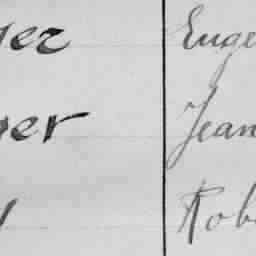 ger Euge
yer Jean
y Rob